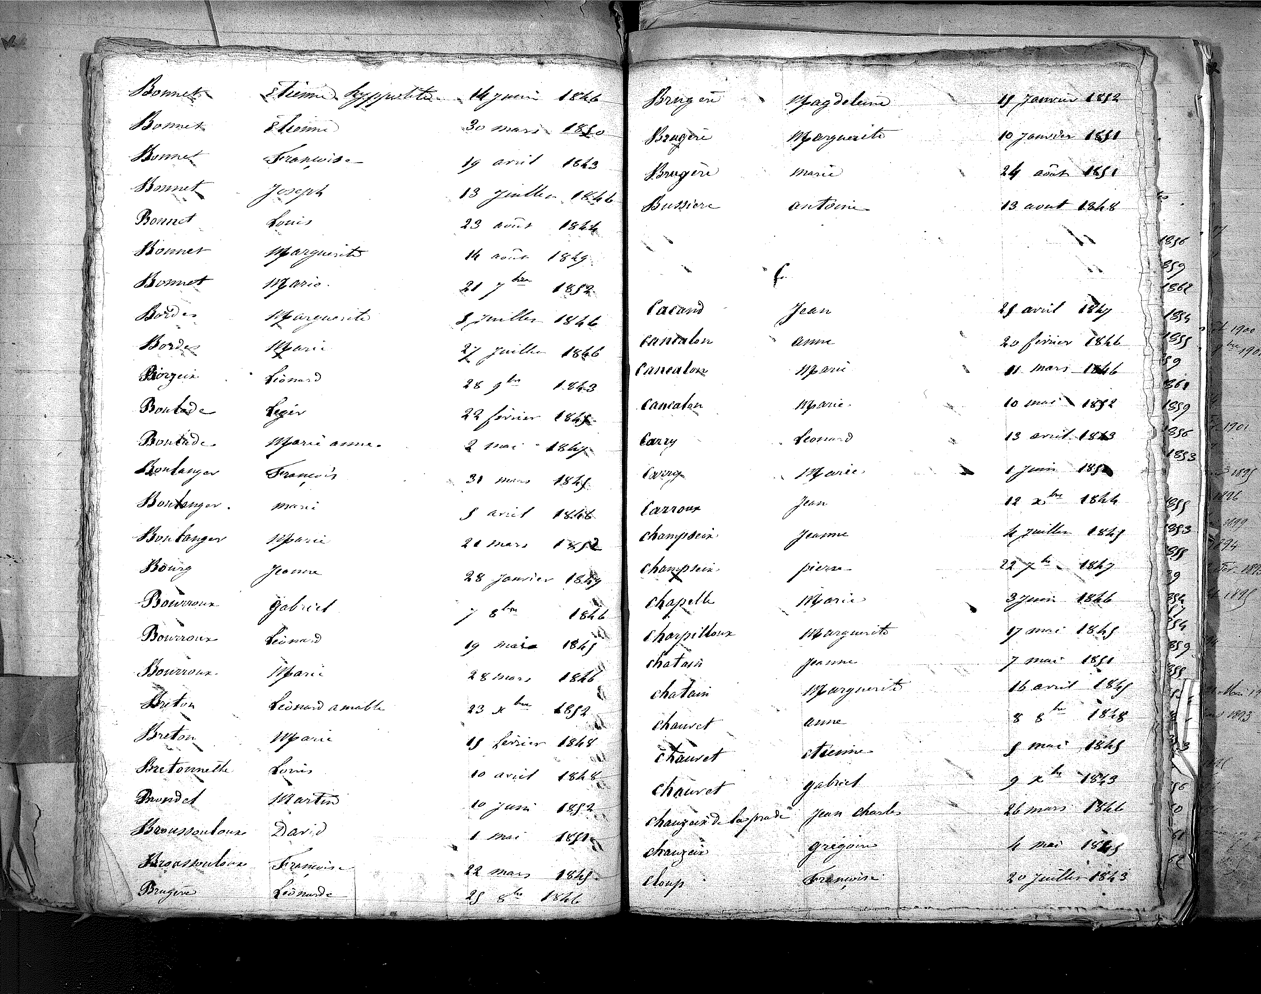 Bonnet Etienne hyppolite 14 juin 1846
Bonnet Etienne 30 mars 1850
Bonnet Françoise 19 avril 1843
Bonnet Joseph 13 juillet 1846
Bonnet Louis 23 août 1844
Bonnet Marguerite 14 août 1849
Bonnet Marie 21 7bre 1852
Bordes Marguerite 5 juillet 1846
Bordes Marie 27 juillet 1846
Léonard 28 9bre 1843
Boutade Léger 22 février 1845
Boutade Marie anne 2 mai 1847
Boulanger François 31 mars 1845
Boulanger marie 5 avril 1848
Boulanger Marie 21 mars 1852
Bourg Jeanne 28 janvier 1849
Bourroux gabriel 7 8bre 1846
Bourroux Léonard 19 mars 1845
Bourroux Marie 28 mars 1846
Breton Léonard amable 23 xbre 1852
Breton Marie 15 février 1848
Bretonnelle Louis 10 avril 1848
Brondel Martin 10 juin 1852
Broussouloux David 1 mai 1851
Broussouloux Françoise 22 mars 1845
Brugere Léonarde 25 8bre 1846
Brugère Magdeleine 15 janvier 1852
Brugère Marguerite 10 janvier 1851
Brugère marie 24 août 1851
Bussiere antoine 13 aout 1848
C
Cacaud Jean 25 avril 1847
Cancalon anne 20 février 1846
Cancalon Marie 11 mars 1846
Cancalon Marie 10 mai 1852
Carry Léonard 13 avril 1843
Carry Marie 1 juin
Carroux Jean 12 xbre 1844
Champseix Jeanne 4 juillet 1845
Champseix pierre 22 7bre 1847
Chapelle Marie 3 juin 1846
Charpilloux Marguerite 17 mai 1845
Chatain Jeanne 7 mai 1851
Chatain Marguerite 16 avril 1845
Chauvet anne 8 8bre 1848
Chauvet etienne 5 mai 1845
Chauvet gabriel 9 xbre 1843
Chauzeix de lasprade Jean Charles 26 mars 1846
Chauzeix grégoire 4 mai 1845
Cloup Françoise 20 juillet 1843